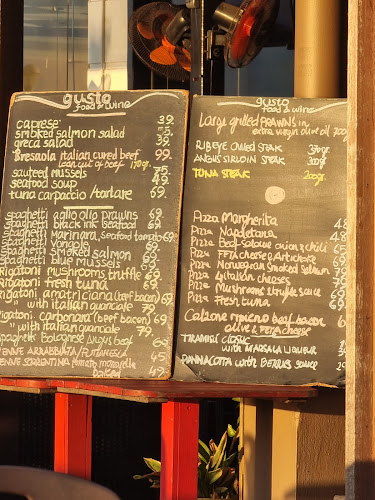 gusto
food & wine
caprese 39.
smoked salmon salad 75.
greca salad 39.
Bresaola italian cured beef 99.
lean cut of beef 170gr.
sauteed mussels 75.
seafood soup 49.
tuna carpaccio/tartare 69.
spaghetti aglio olio prawns 69.
spaghetti black ink seafood 69.
spaghetti marinara seafood tomato 69.
spaghetti vongole
spaghetti smoked salmon
spaghetti blue mussels
Rigatoni mushrooms, truffle 69.
Rigatoni fresh tuna 69.
Rigatoni amatriciana (beef bacon) 69.
" with italian guanciale 79.
Rigatoni carbonara (beef bacon) 69.
" with italian guanciale 79.
spaghetti Bolognese Angus beef
PENNE ARRABBIATA/PUTTANESCA
PENNE SORRENTINA tomato mozzarella 49.
gusto
food & wine
Large grilled PRAWNS in
extra virgin olive oil 200gr
RIBEYE CHILLED STEAK 370gr.
ANGUS SIRLOIN STEAK 250gr.
TUNA STEAK 200gr.
Pizza Margherita 48
Pizza Napoletana
Pizza Beef salame onion & chili
Pizza FETA cheese, Artichoke
Pizza Norwegian Smoked salmon
Pizza 4 italian cheeses
Pizza Mushrooms truffle sauce
Pizza Fresh tuna 69
Calzone ripieno beef bacon
olive & FETA cheese
TIRAMISÙ CLASSIC
with MARSALA LIQUEUR
PANNACOTTA with BERRIES SAUCE